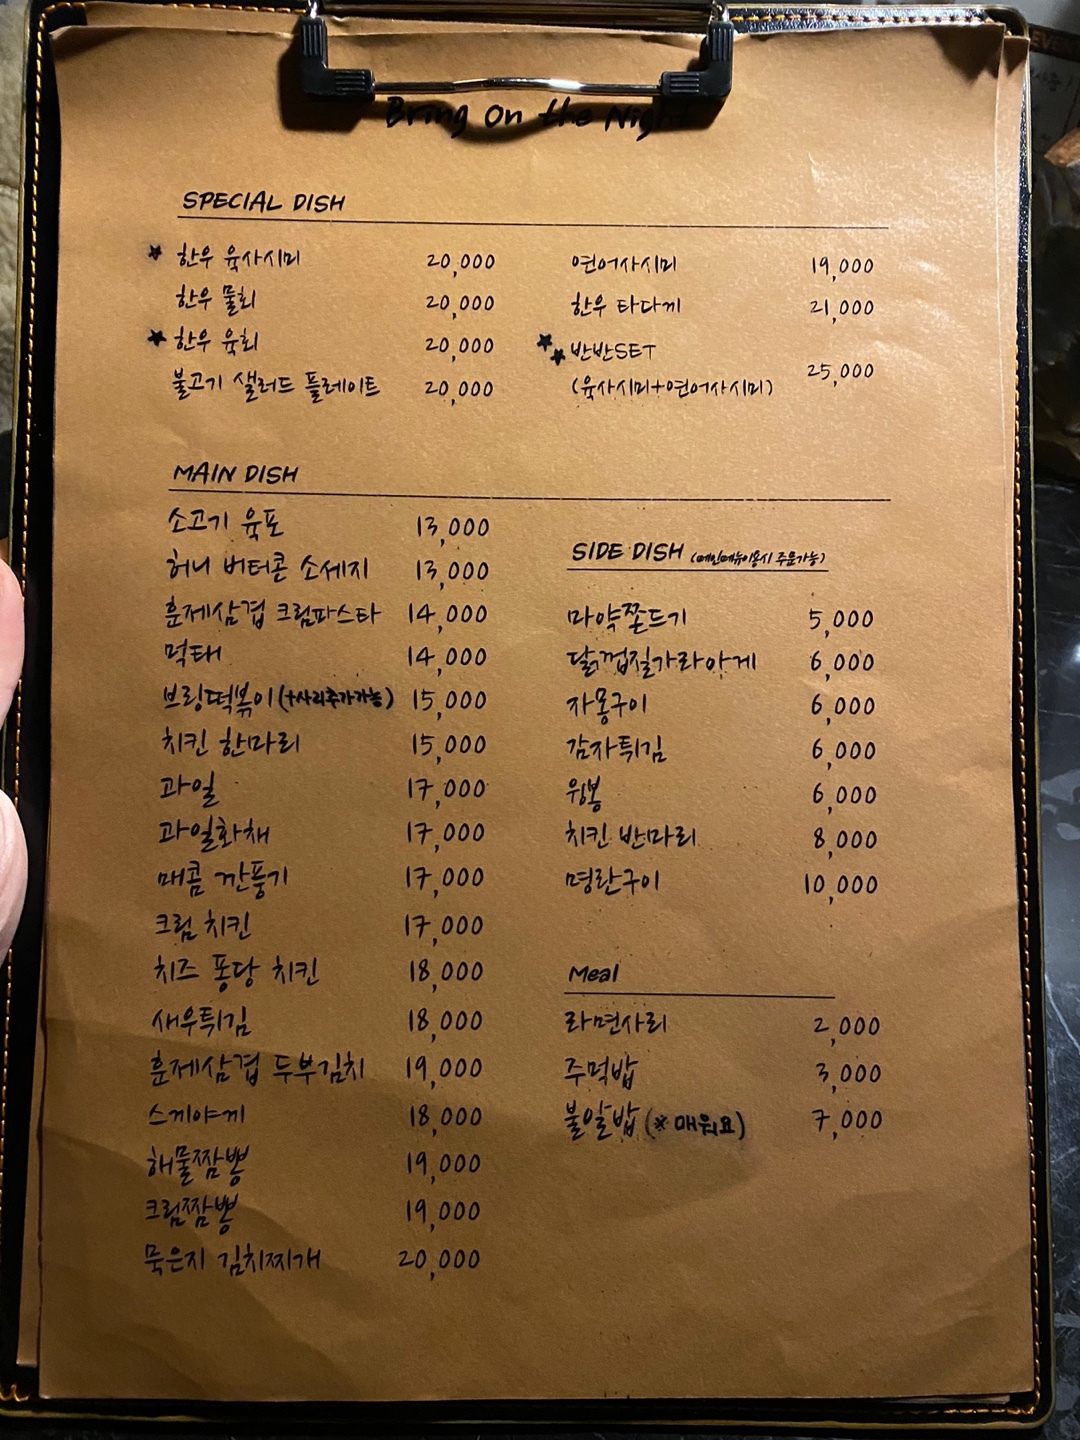 Bring on the Night
SPECIAL DISH
★ 한우 육사시미 20,000
한우 물회 20,000
★ 한우 육회 20,000
불고기 샐러드 플레이트 20,000
연어사시미 19,000
한우 타다끼 21,000
★★ 반반SET
(육사시미+연어사시미) 25,000
MAIN DISH
소고기 육포 13,000
허니 버터콘 소세지 13,000
훈제삼겹 크림파스타 14,000
먹태 14,000
브링떡볶이(+사리추가가능) 15,000
치킨 한마리 15,000
과일 17,000
과일화채 17,000
매콤 깐풍기 17,000
크림 치킨 17,000
치즈 퐁당 치킨 18,000
새우튀김 18,000
훈제삼겹 두부김치 19,000
스게야끼 18,000
해물짬뽕 19,000
크림짬뽕 19,000
묵은지 김치찌개 20,000
SIDE DISH (메인메뉴이용시 주문가능)
마약쫀드기 5,000
닭껍질가라아게 6,000
자몽구이 6,000
감자튀김 6,000
윙봉 6,000
치킨 반마리 8,000
명란구이 10,000
Meal
라면사리 2,000
주먹밥 3,000
불알밥 (※ 매워요) 7,000
EVEN